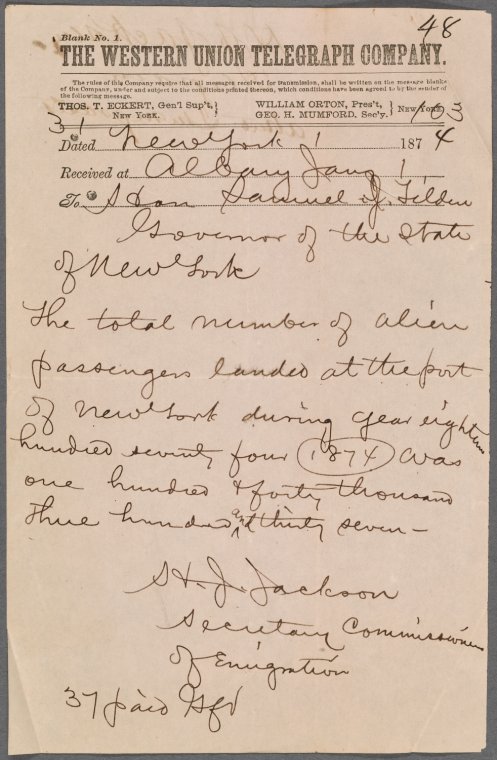 48
Blank No. 1.
THE WESTERN UNION TELEGRAPH COMPANY.
The rules of this Company require that all messages received for transmission, shall be written on the message blanks
of the Company, under and subject to the conditions printed thereon, which conditions have been agreed to by the sender of
the following message.
THOS. T. ECKERT, Gen'l Sup't, } NEW YORK. WILLIAM ORTON, Pres't, } NEW YORK.
GEO. H. MUMFORD, Sec'y.
31
Dated New York 1 1874
Received at Albany Jany 1
To Hon Samuel J. Tilden
Governor of the State
of New York
The total number of alien
passengers landed at the port
of New York during year eighteen
hundred seventy four (1874) was
one hundred & forty thousand
three hundred and thirty seven -
H. J. Jackson
Secretary Commissioners
of Emigration
37 paid